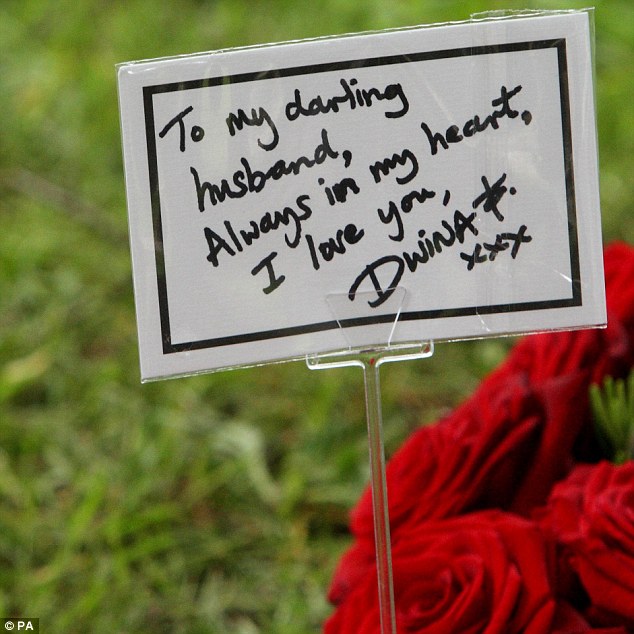 To my darling
husband,
Always in my heart,
I love you,
DWINA
xxx
© PA